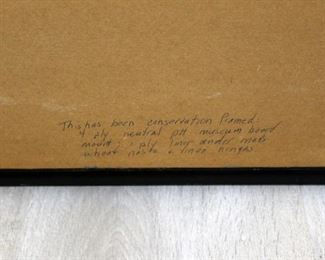 This has been conservation framed.
4 ply neutral pH museum board
mount; 1 ply liner under mats
wheat paste & linen hinges